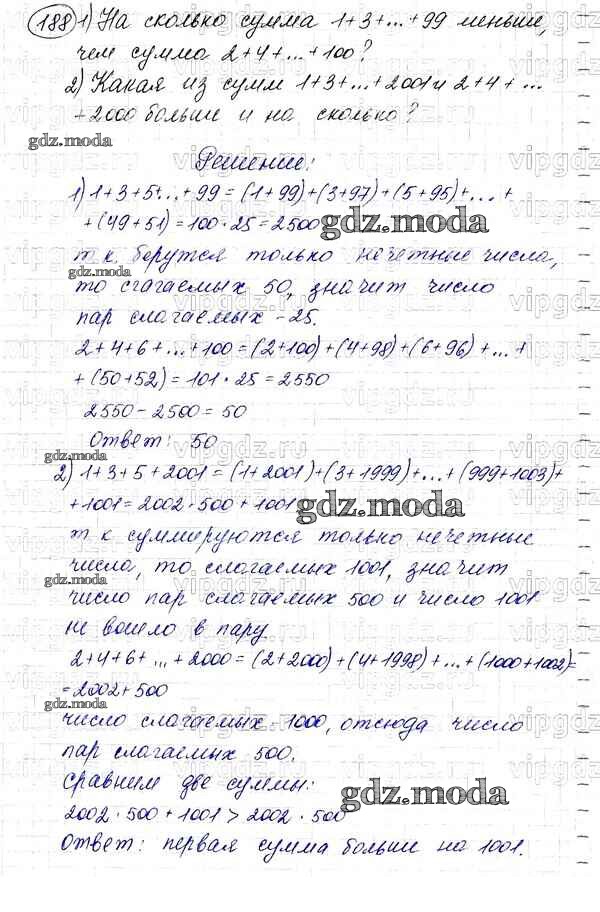 188 1) На сколько сумма 1+3+...+99 меньше,
чем сумма 2+4+...+100?
2) Какая из сумм 1+3+...+2001 и 2+4+...
+2000 больше и на сколько?
gdz.moda
Решение:
1) 1+3+5+...+99 = (1+99)+(3+97)+(5+95)+...+
+(49+51) = 100·25 = 2500
gdz.moda
т к. берутся только нечетные числа,
gdz.moda
то сгагаемых 50, значит число
пар слагаемых - 25.
2+4+6+...+100 = (2+100)+(4+98)+(6+96)+...+
+(50+52) = 101·25 = 2550
2550-2500 = 50
Ответ: 50
gdz.moda
2) 1+3+5+2001 = (1+2001)+(3+1999)+...+(999+1003)+
+1001 = 2002·500+1001
gdz.moda
т к суммируются только нечетные
числа, то слагаемых 1001, значит
gdz.moda
число пар слагаемых 500 и число 1001
не вошло в пару
2+4+6+...+2000 = (2+2000)+(4+1998)+...+(1000+1002)=
=2002+500
число слагаемых - 1000, отсюда число
пар слагаемых 500.
сравним две суммы:
gdz.moda
2002·500+1001 > 2002·500
Ответ: первая сумма больши на 1001.